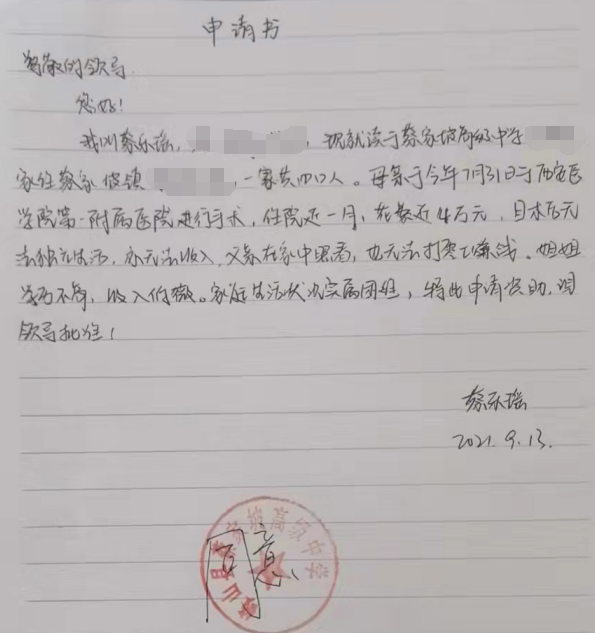 申请书
尊敬的领导：
您好！
我叫蔡乐瑶，，现就读于蔡家坡高级中学
家住蔡家坡镇，一家共四口人。母亲于今年7月31日于西安医
学院第一附属医院进行手术，住院近一月，花费近4万元，目前无
法独立生活，亦无法收入，父亲在家中照看，也无法打零工赚钱。姐姐
学历不高，收入低微。家庭生活状况实属困难，特此申请资助，望
领导批准！
蔡乐瑶
2021.9.13.
岐山县蔡家坡高级中学
同意